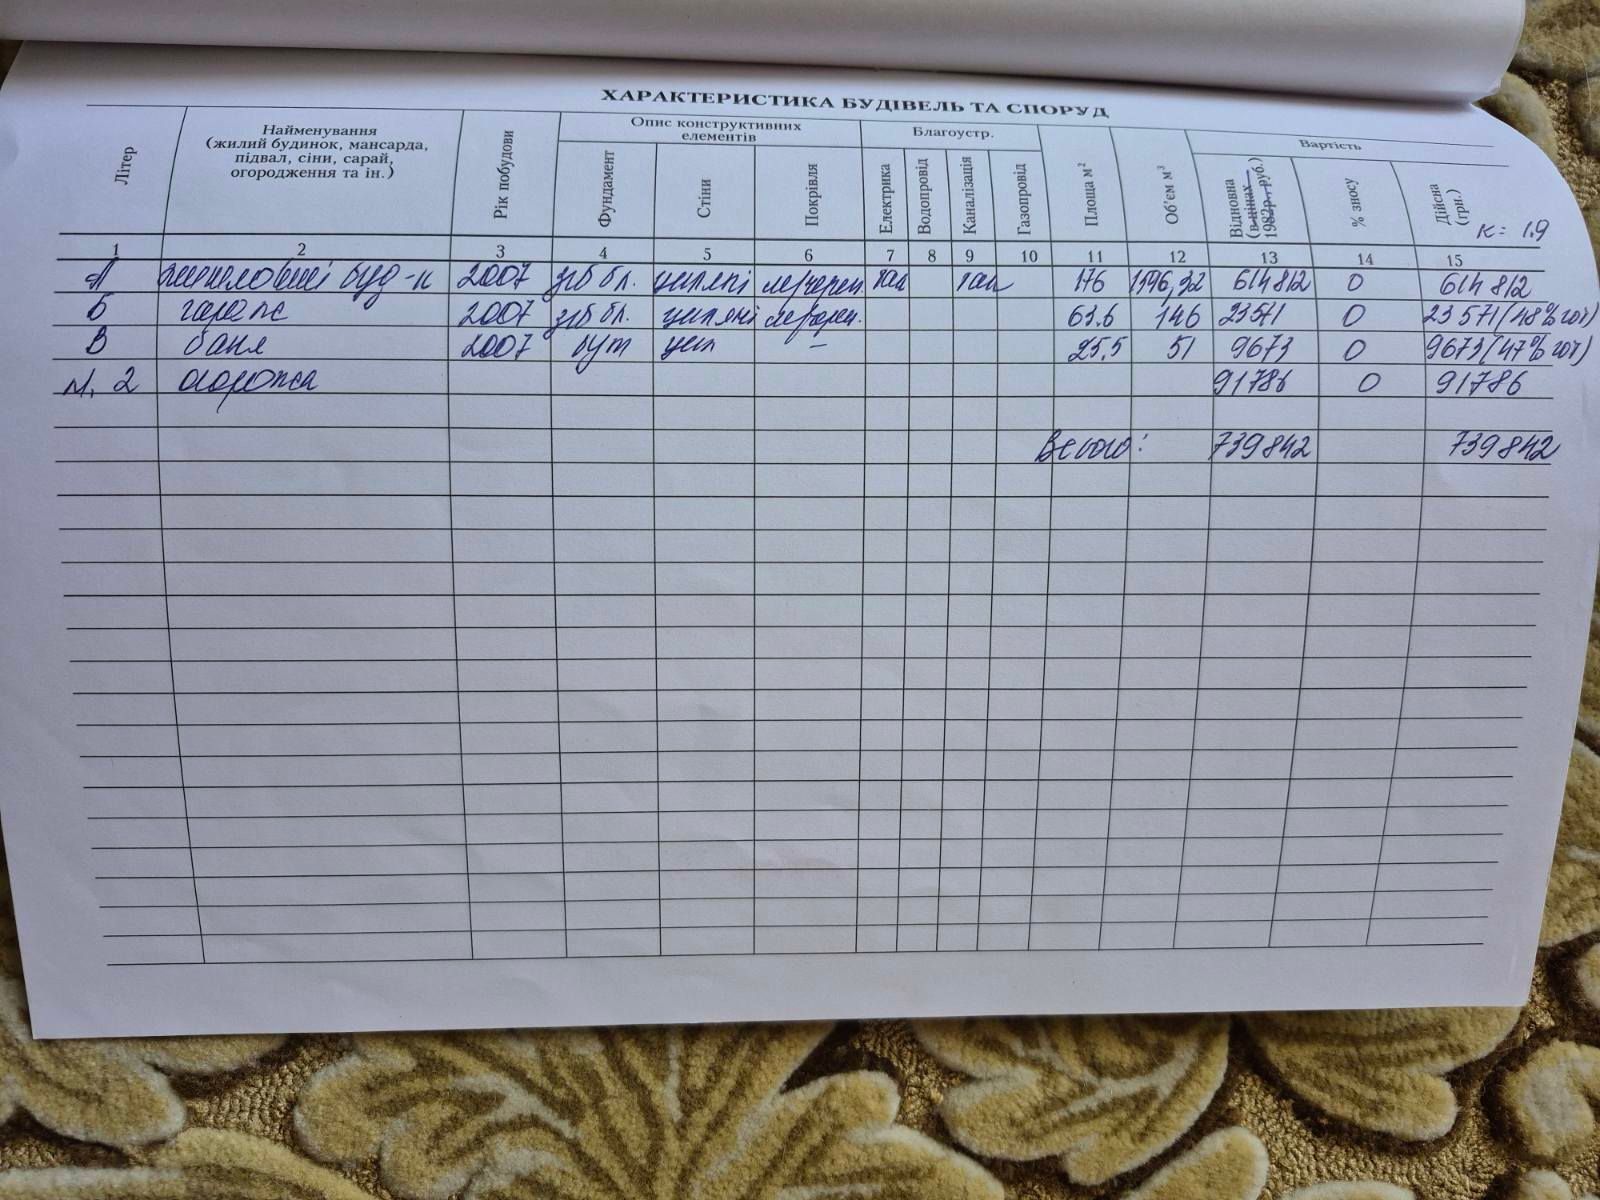 ХАРАКТЕРИСТИКА БУДІВЕЛЬ ТА СПОРУД
Літер
Найменування
(жилий будинок, мансарда,
підвал, сіни, сарай,
огородження та ін.)
Рік побудови
Опис конструктивних
елементів
Фундамент
Стіни
Покрівля
Благоустр.
Електрика
Водопровід
Каналізація
Газопровід
Площа м²
Об'єм м³
Вартість
Відновна
(в цінах
1982р., руб.)
% зносу
Дійсна
(грн.)
к= 1.9
1 2 3 4 5 6 7 8 9 10 11 12 13 14 15
А житловий буд-к 2007 з/б бл. цегляні 176 614812 0 614812
Б гараж 2007 з/б бл. цегляні 63.6 146 23571 0 23571 (48% гот)
В баня 2007 бут цегл – 25,5 51 9673 0 9673 (47% гот)
№ 2 огорожа 91786 0 91786
Всього: 739842 739842